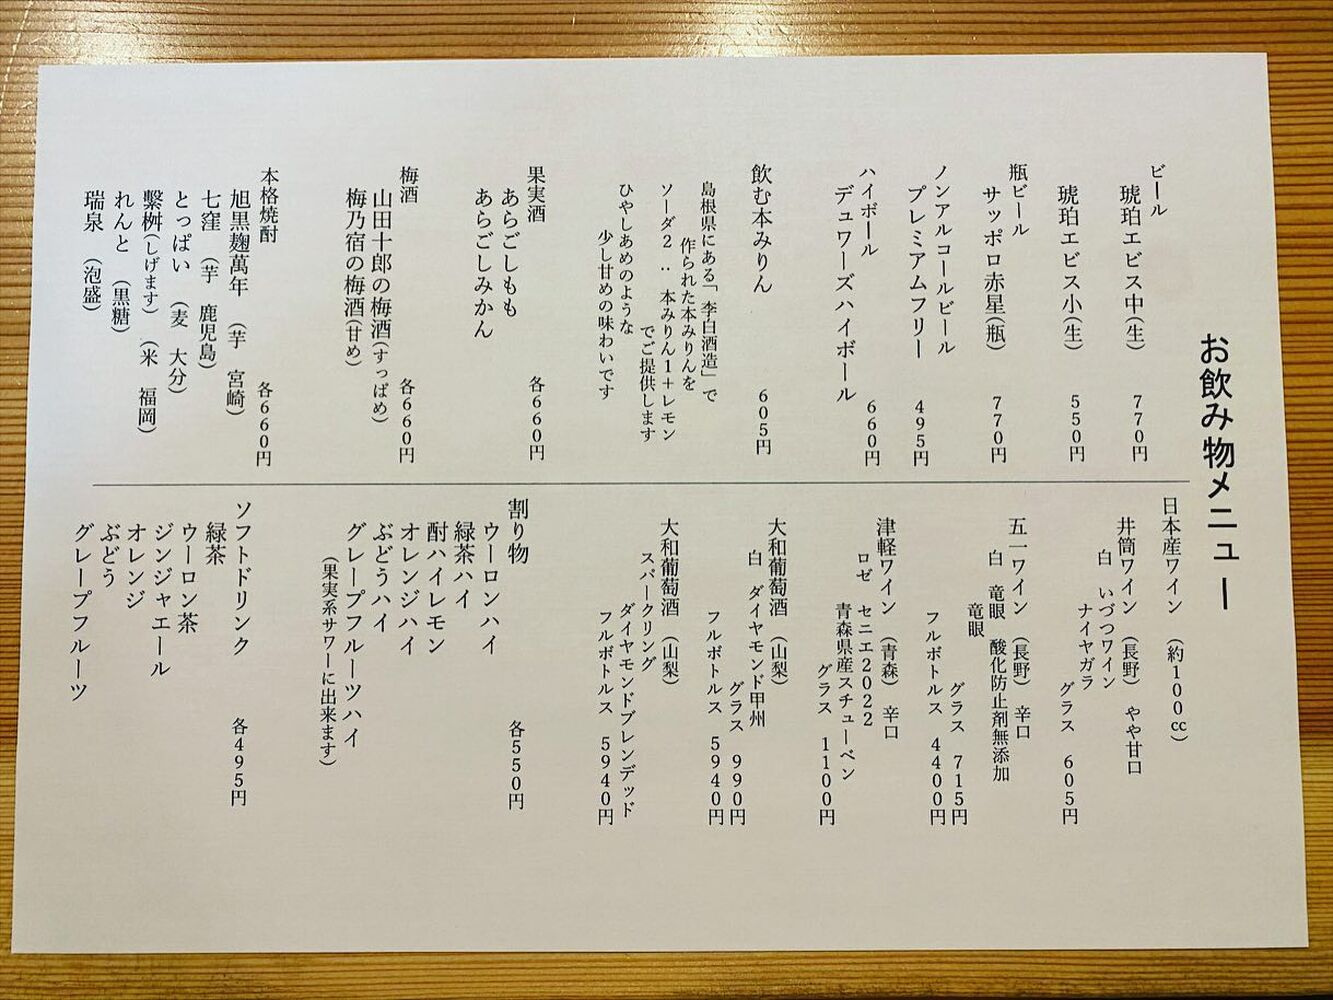 お飲み物メニュー
ビール
琥珀エビス中(生) 770円
琥珀エビス小(生) 550円
瓶ビール
サッポロ赤星(瓶) 770円
ノンアルコールビール
プレミアムフリー 495円
ハイボール 660円
デュワーズハイボール
飲む本みりん 605円
島根県にある「李白酒造」で
作られた本みりんを
ソーダ2:本みりん1+レモン
でご提供します
ひやしあめのような
少し甘めの味わいです
果実酒 各660円
あらごしもも
あらごしみかん
梅酒 各660円
山田十郎の梅酒(すっぱめ)
梅乃宿の梅酒(甘め)
本格焼酎 各660円
旭黒麹萬年 (芋 宮崎)
七窪 (芋 鹿児島)
とっぱい (麦 大分)
繫桝(しげます) (米 福岡)
れんと (黒糖)
瑞泉 (泡盛)
日本産ワイン (約100㏄)
井筒ワイン (長野) やや甘口
白 いづつワイン
ナイヤガラ
グラス 605円
五一ワイン (長野) 辛口
白 竜眼 酸化防止剤無添加
竜眼
グラス 715円
フルボトルス 4400円
津軽ワイン (青森) 辛口
ロゼ セニエ2022
青森県産スチューベン
グラス 1100円
大和葡萄酒 (山梨)
白 ダイヤモンド甲州
グラス 990円
フルボトルス 5940円
大和葡萄酒 (山梨)
スパークリング
ダイヤモンドブレンデッド
フルボトルス 5940円
割り物 各550円
ウーロンハイ
緑茶ハイ
酎ハイレモン
オレンジハイ
ぶどうハイ
グレープフルーツハイ
(果実系サワーに出来ます)
ソフトドリンク 各495円
緑茶
ウーロン茶
ジンジャエール
オレンジ
ぶどう
グレープフルーツ